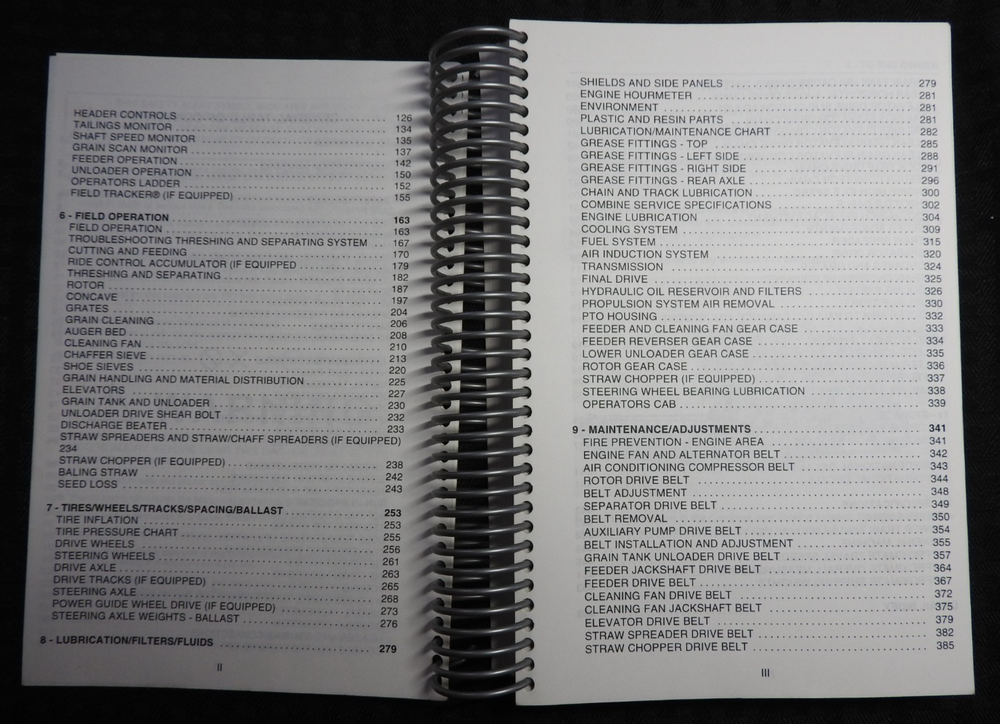 HEADER CONTROLS 126
TAILINGS MONITOR 134
SHAFT SPEED MONITOR 135
GRAIN SCAN MONITOR 137
FEEDER OPERATION 142
UNLOADER OPERATION 150
OPERATORS LADDER 152
FIELD TRACKER® (IF EQUIPPED) 155
6 - FIELD OPERATION 163
FIELD OPERATION 163
TROUBLESHOOTING THRESHING AND SEPARATING SYSTEM 167
CUTTING AND FEEDING 170
RIDE CONTROL ACCUMULATOR (IF EQUIPPED 179
THRESHING AND SEPARATING 182
ROTOR 187
CONCAVE 197
GRATES 204
GRAIN CLEANING 206
AUGER BED 208
CLEANING FAN 210
CHAFFER SIEVE 213
SHOE SIEVES 220
GRAIN HANDLING AND MATERIAL DISTRIBUTION 225
ELEVATORS 227
GRAIN TANK AND UNLOADER 230
UNLOADER DRIVE SHEAR BOLT 232
DISCHARGE BEATER 233
STRAW SPREADERS AND STRAW/CHAFF SPREADERS (IF EQUIPPED)
234
STRAW CHOPPER (IF EQUIPPED) 238
BALING STRAW 242
SEED LOSS 243
7 - TIRES/WHEELS/TRACKS/SPACING/BALLAST 253
TIRE INFLATION 253
TIRE PRESSURE CHART 255
DRIVE WHEELS 256
STEERING WHEELS 261
DRIVE AXLE 263
DRIVE TRACKS (IF EQUIPPED) 265
STEERING AXLE 268
POWER GUIDE WHEEL DRIVE (IF EQUIPPED) 273
STEERING AXLE WEIGHTS - BALLAST 276
8 - LUBRICATION/FILTERS/FLUIDS 279
II
SHIELDS AND SIDE PANELS 279
ENGINE HOURMETER 281
ENVIRONMENT 281
PLASTIC AND RESIN PARTS 281
LUBRICATION/MAINTENANCE CHART 282
GREASE FITTINGS - TOP 285
GREASE FITTINGS - LEFT SIDE 288
GREASE FITTINGS - RIGHT SIDE 291
GREASE FITTINGS - REAR AXLE 296
CHAIN AND TRACK LUBRICATION 300
COMBINE SERVICE SPECIFICATIONS 302
ENGINE LUBRICATION 304
COOLING SYSTEM 309
FUEL SYSTEM 315
AIR INDUCTION SYSTEM 320
TRANSMISSION 324
FINAL DRIVE 325
HYDRAULIC OIL RESERVOIR AND FILTERS 326
PROPULSION SYSTEM AIR REMOVAL 330
PTO HOUSING 332
FEEDER AND CLEANING FAN GEAR CASE 333
FEEDER REVERSER GEAR CASE 334
LOWER UNLOADER GEAR CASE 335
ROTOR GEAR CASE 336
STRAW CHOPPER (IF EQUIPPED) 337
STEERING WHEEL BEARING LUBRICATION 338
OPERATORS CAB 339
9 - MAINTENANCE/ADJUSTMENTS 341
FIRE PREVENTION - ENGINE AREA 341
ENGINE FAN AND ALTERNATOR BELT 342
AIR CONDITIONING COMPRESSOR BELT 343
ROTOR DRIVE BELT 344
BELT ADJUSTMENT 348
SEPARATOR DRIVE BELT 349
BELT REMOVAL 350
AUXILIARY PUMP DRIVE BELT 354
BELT INSTALLATION AND ADJUSTMENT 355
GRAIN TANK UNLOADER DRIVE BELT 357
FEEDER JACKSHAFT DRIVE BELT 364
FEEDER DRIVE BELT 367
CLEANING FAN DRIVE BELT 372
CLEANING FAN JACKSHAFT BELT 375
ELEVATOR DRIVE BELT 379
STRAW SPREADER DRIVE BELT 382
STRAW CHOPPER DRIVE BELT 385
III